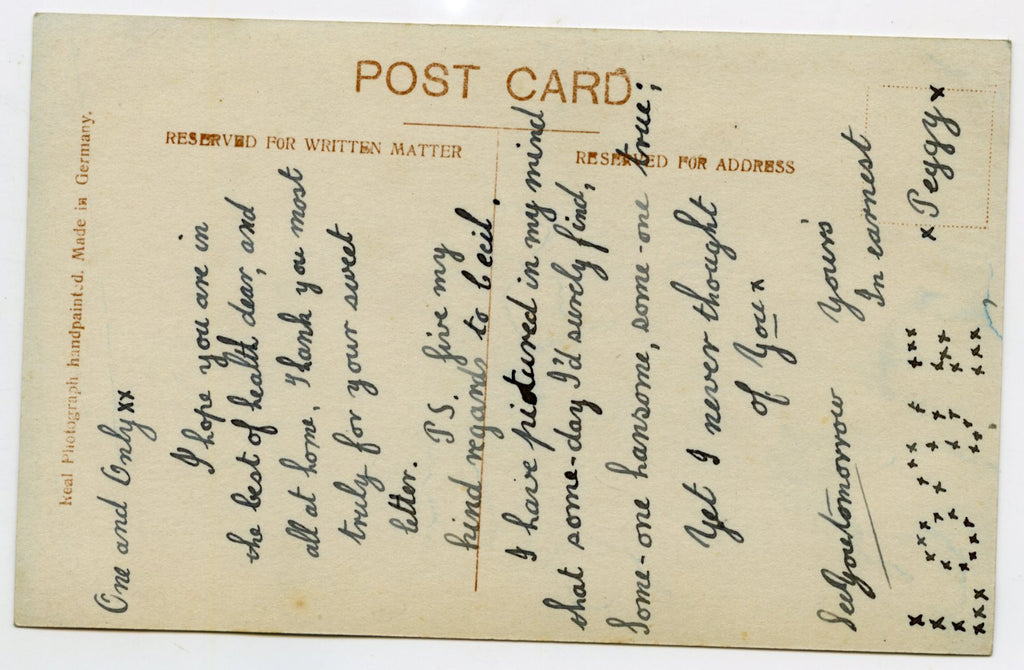 POST CARD
RESERVED FOR WRITTEN MATTER
RESERVED FOR ADDRESS
Real Photograph handpainted. Made in Germany.
One and Only xx
I hope you are in
the best of health dear, and
all at home, Thank you most
truly for your sweet
letter.
P.S. Give my
kind regards to Cecil.
I have pictured in my mind
that some-day I'd surely find,
Some-one hansome, some-one true;
Yet I never thought
of You x
See You tomorrow Yours
In earnest
x Peggy x
x xxx x xx xx xxx
x x x x x xxx
x xx x xx x
xxx xxx xxx xxx